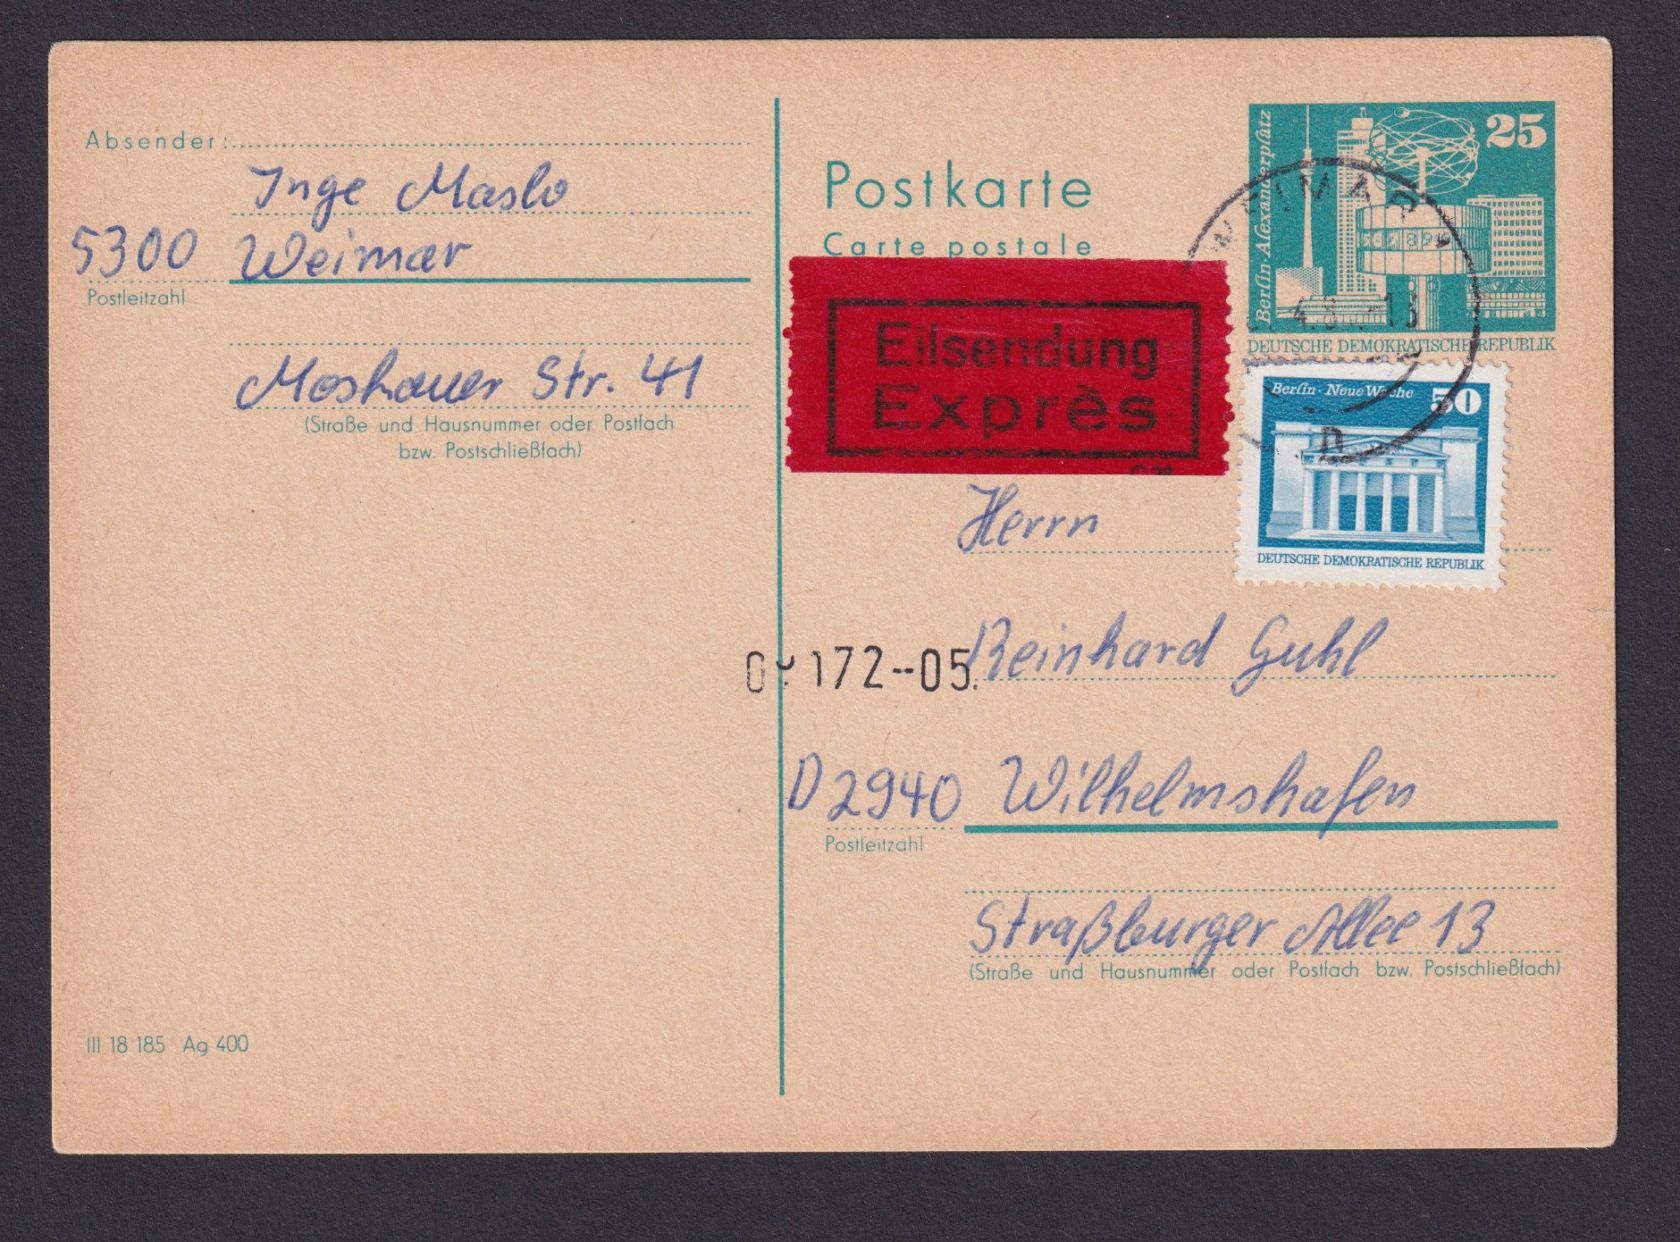 Absender:
Inge Maslo
5300 Weimar
Postleitzahl
Moskauer Str. 41
(Straße und Hausnummer oder Postfach
bzw. Postschließfach)
III 18 185 Ag 400
Postkarte
Carte postale
Eilsendung
Exprès
Berlin·Alexanderplatz
25
DEUTSCHE DEMOKRATISCHE REPUBLIK
WEIMAR
Berlin · Neue Wache
50
DEUTSCHE DEMOKRATISCHE REPUBLIK
Herrn
172--05
Reinhard Guhl
D 2940 Wilhelmshafen
Postleitzahl
Straßburger Allee 13
(Straße und Hausnummer oder Postfach bzw. Postschließfach)